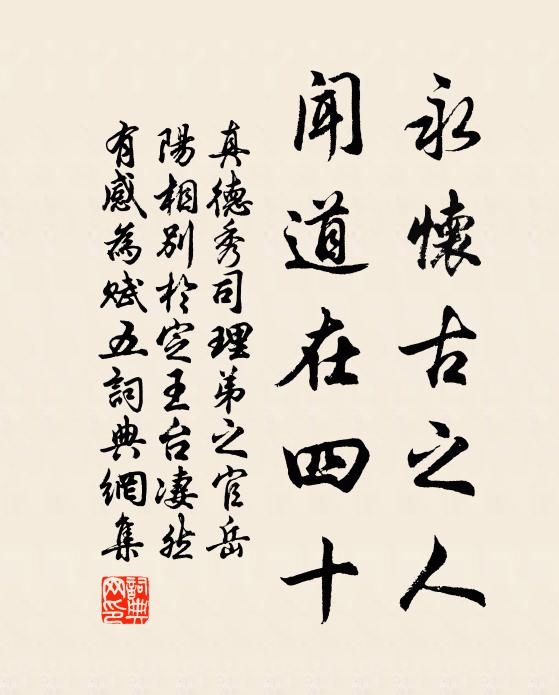 永懷古之人
聞道在四十
真德秀司理弟之官岳
陽相別於定王台凄然
有感為賦五詞典網集
詞典網印